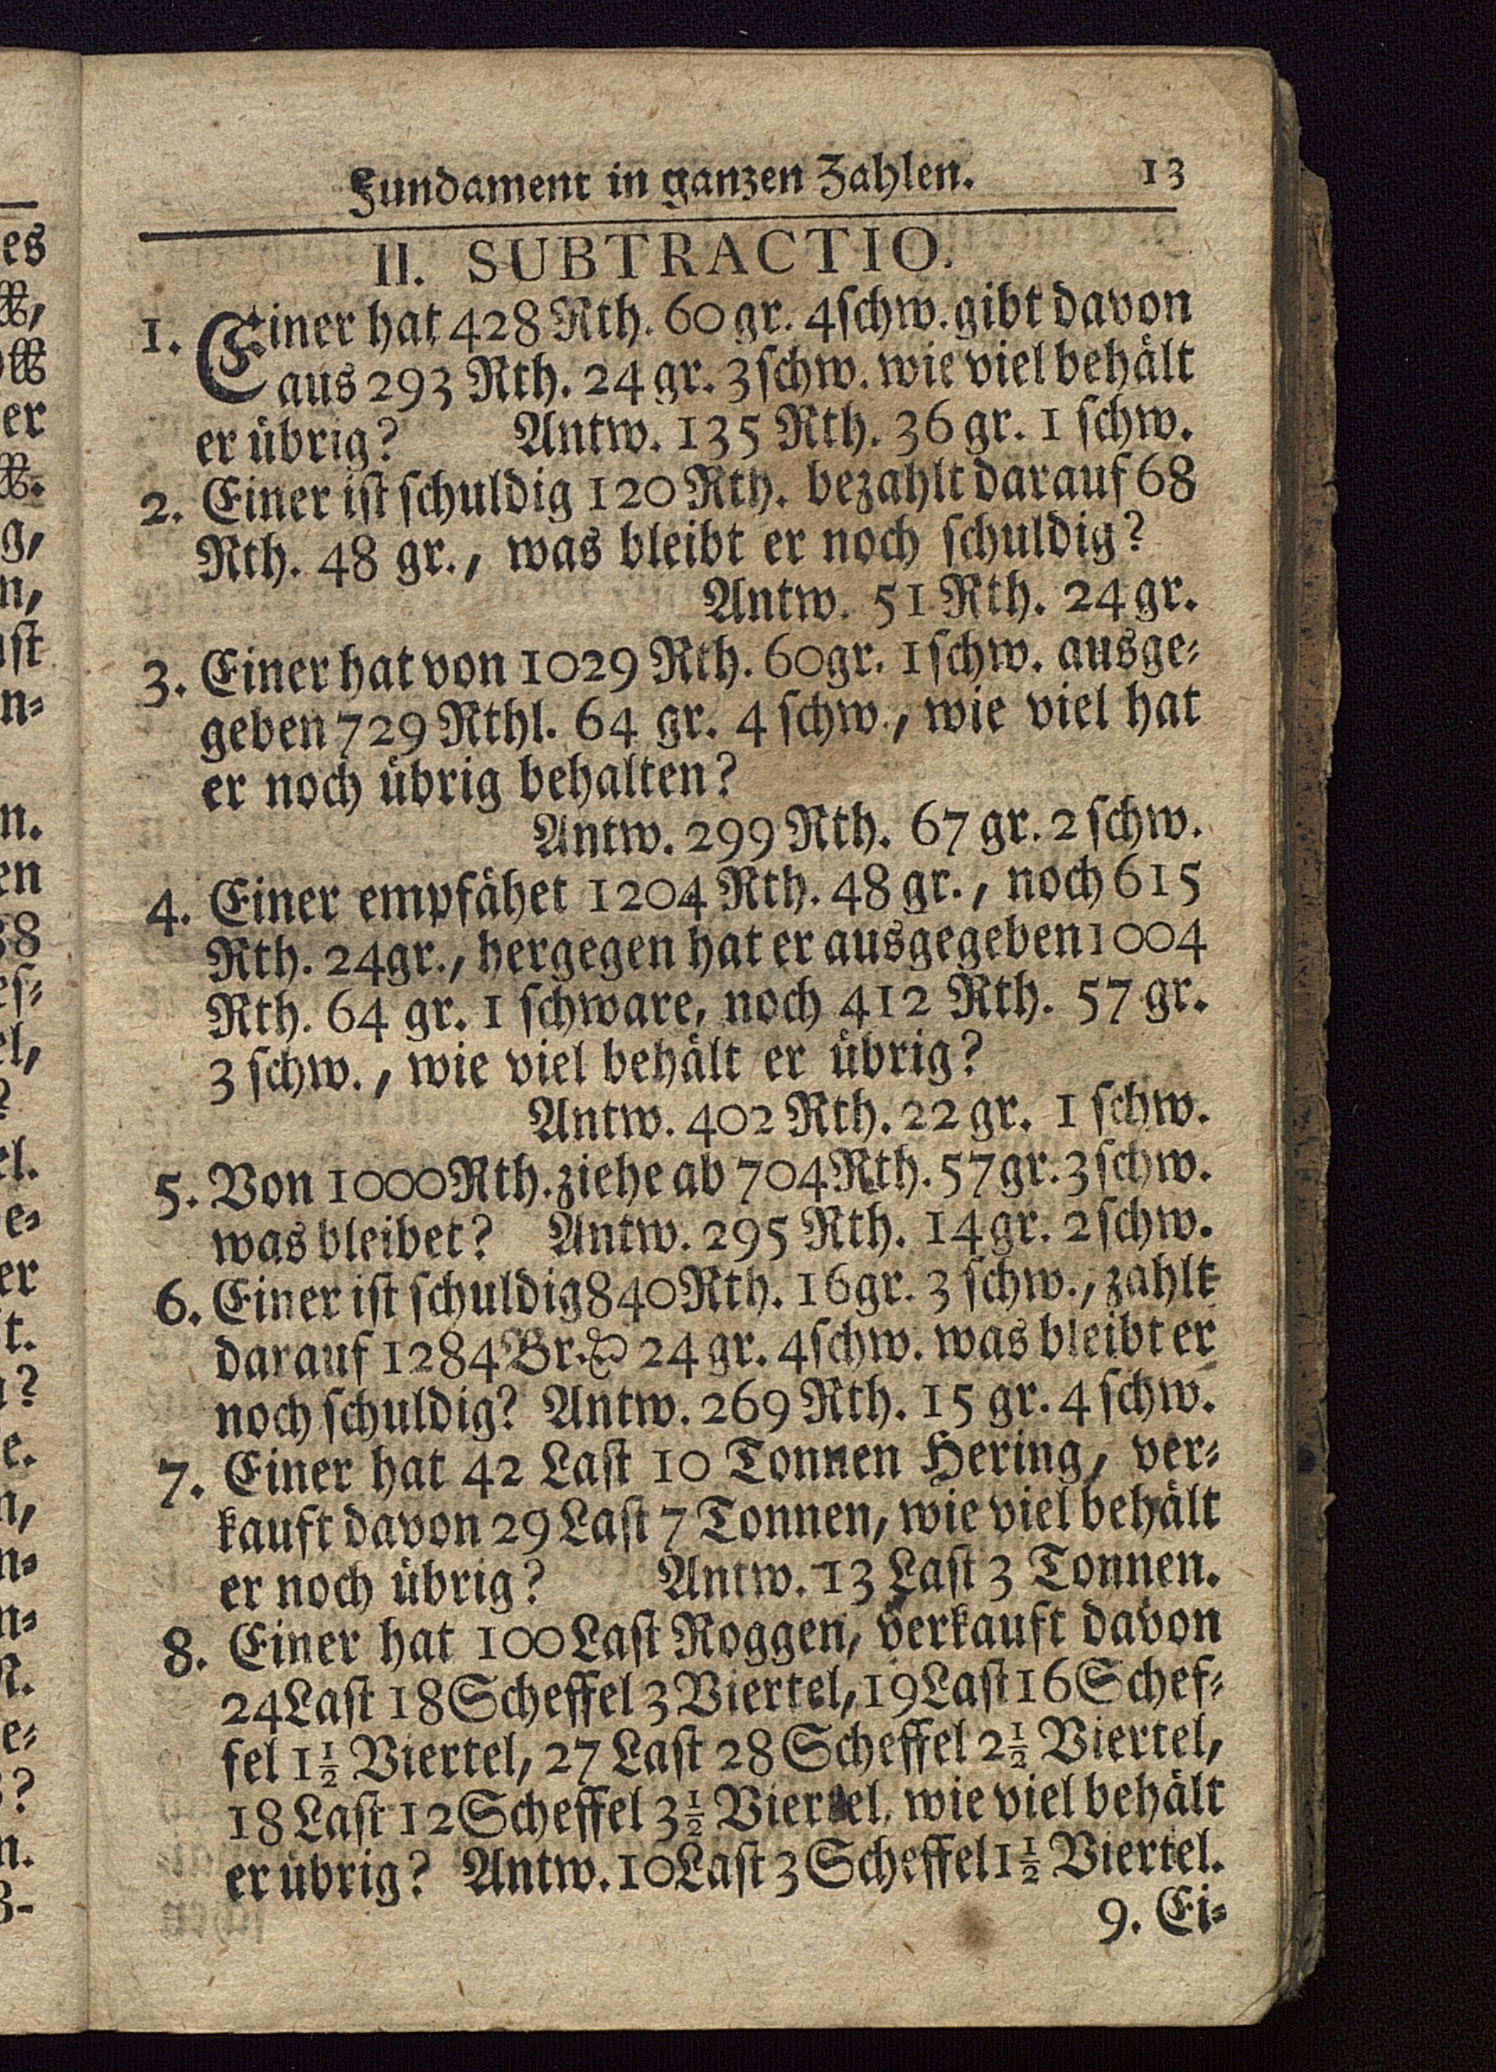 Fundament in ganzen Zahlen. 13
II. SUBTRACTIO.
1. Einer hat 428 Rth. 60 gr. 4 schw. gibt davon
aus 293 Rth. 24 gr. 3 schw. wie viel behält
er übrig? Antw. 135 Rth. 36 gr. 1 schw.
2. Einer ist schuldig 120 Rth. bezahlt darauf 68
Rth. 48 gr., was bleibt er noch schuldig?
Antw. 51 Rth. 24 gr.
3. Einer hat von 1029 Rth. 60 gr. 1 schw. ausge-
geben 729 Rthl. 64 gr. 4 schw., wie viel hat
er noch übrig behalten?
Antw. 299 Rth. 67 gr. 2 schw.
4. Einer empfähet 1204 Rth. 48 gr., noch 615
Rth. 24 gr., hergegen hat er ausgegeben 1004
Rth. 64 gr. 1 schware, noch 412 Rth. 57 gr.
3 schw., wie viel behält er übrig?
Antw. 402 Rth. 22 gr. 1 schw.
5. Von 1000 Rth. ziehe ab 704 Rth. 57 gr. 3 schw.
was bleibet? Antw. 295 Rth. 14 gr. 2 schw.
6. Einer ist schuldig 840 Rth. 16 gr. 3 schw., zahlt
darauf 1284 Br. 24 gr. 4 schw. was bleibt er
noch schuldig? Antw. 269 Rth. 15 gr. 4 schw.
7. Einer hat 42 Last 10 Tonnen Hering, ver-
kauft davon 29 Last 7 Tonnen, wie viel behält
er noch übrig? Antw. 13 Last 3 Tonnen.
8. Einer hat 100 Last Roggen, verkauft davon
24 Last 18 Scheffel 3 Viertel, 19 Last 16 Schef-
fel 1½ Viertel, 27 Last 28 Scheffel 2½ Viertel,
18 Last 12 Scheffel 3½ Viertel, wie viel behält
er übrig? Antw. 10 Last 3 Scheffel 1½ Viertel.
9. Ei-